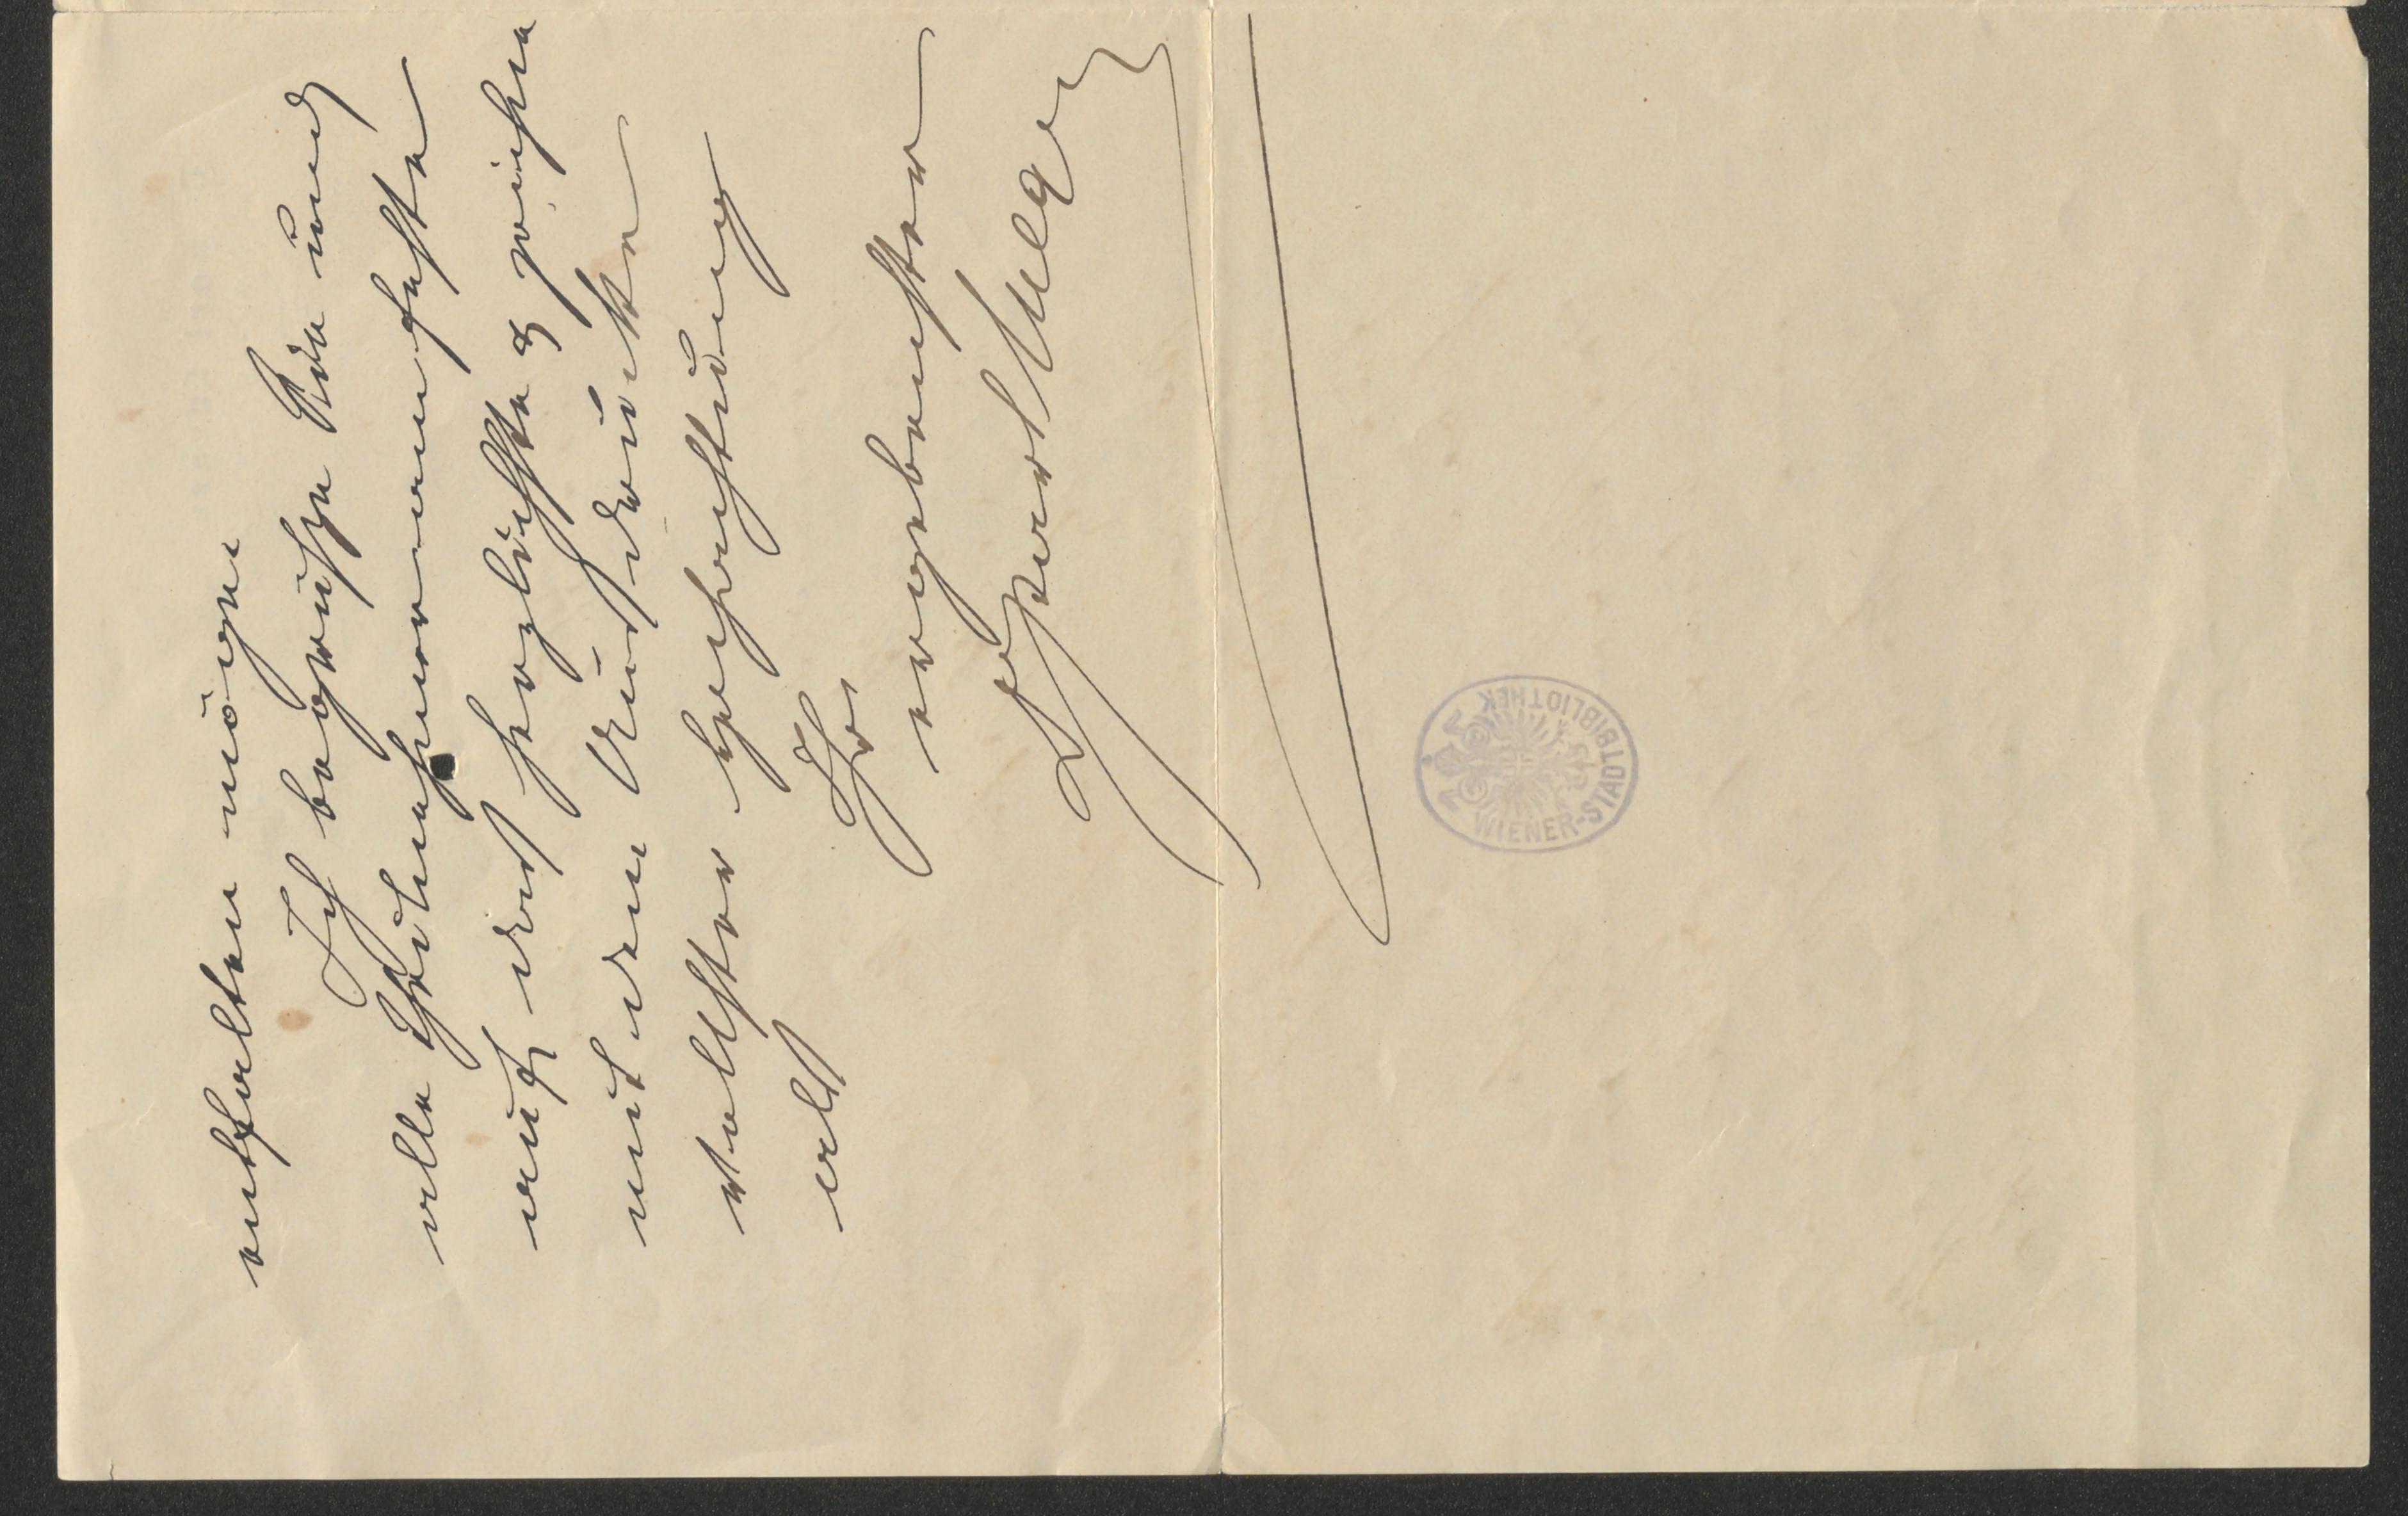 entfalten möge.
Ich begrüße Sie und
alle Theilnehmer am Feste
auf das herzlichste & zeichne
mit dem Ausdrucke
vollster Hochachtung
als
Ihr
ergebenster
Dr Karl Lueger
WIENER-STADTBIBLIOTHEK